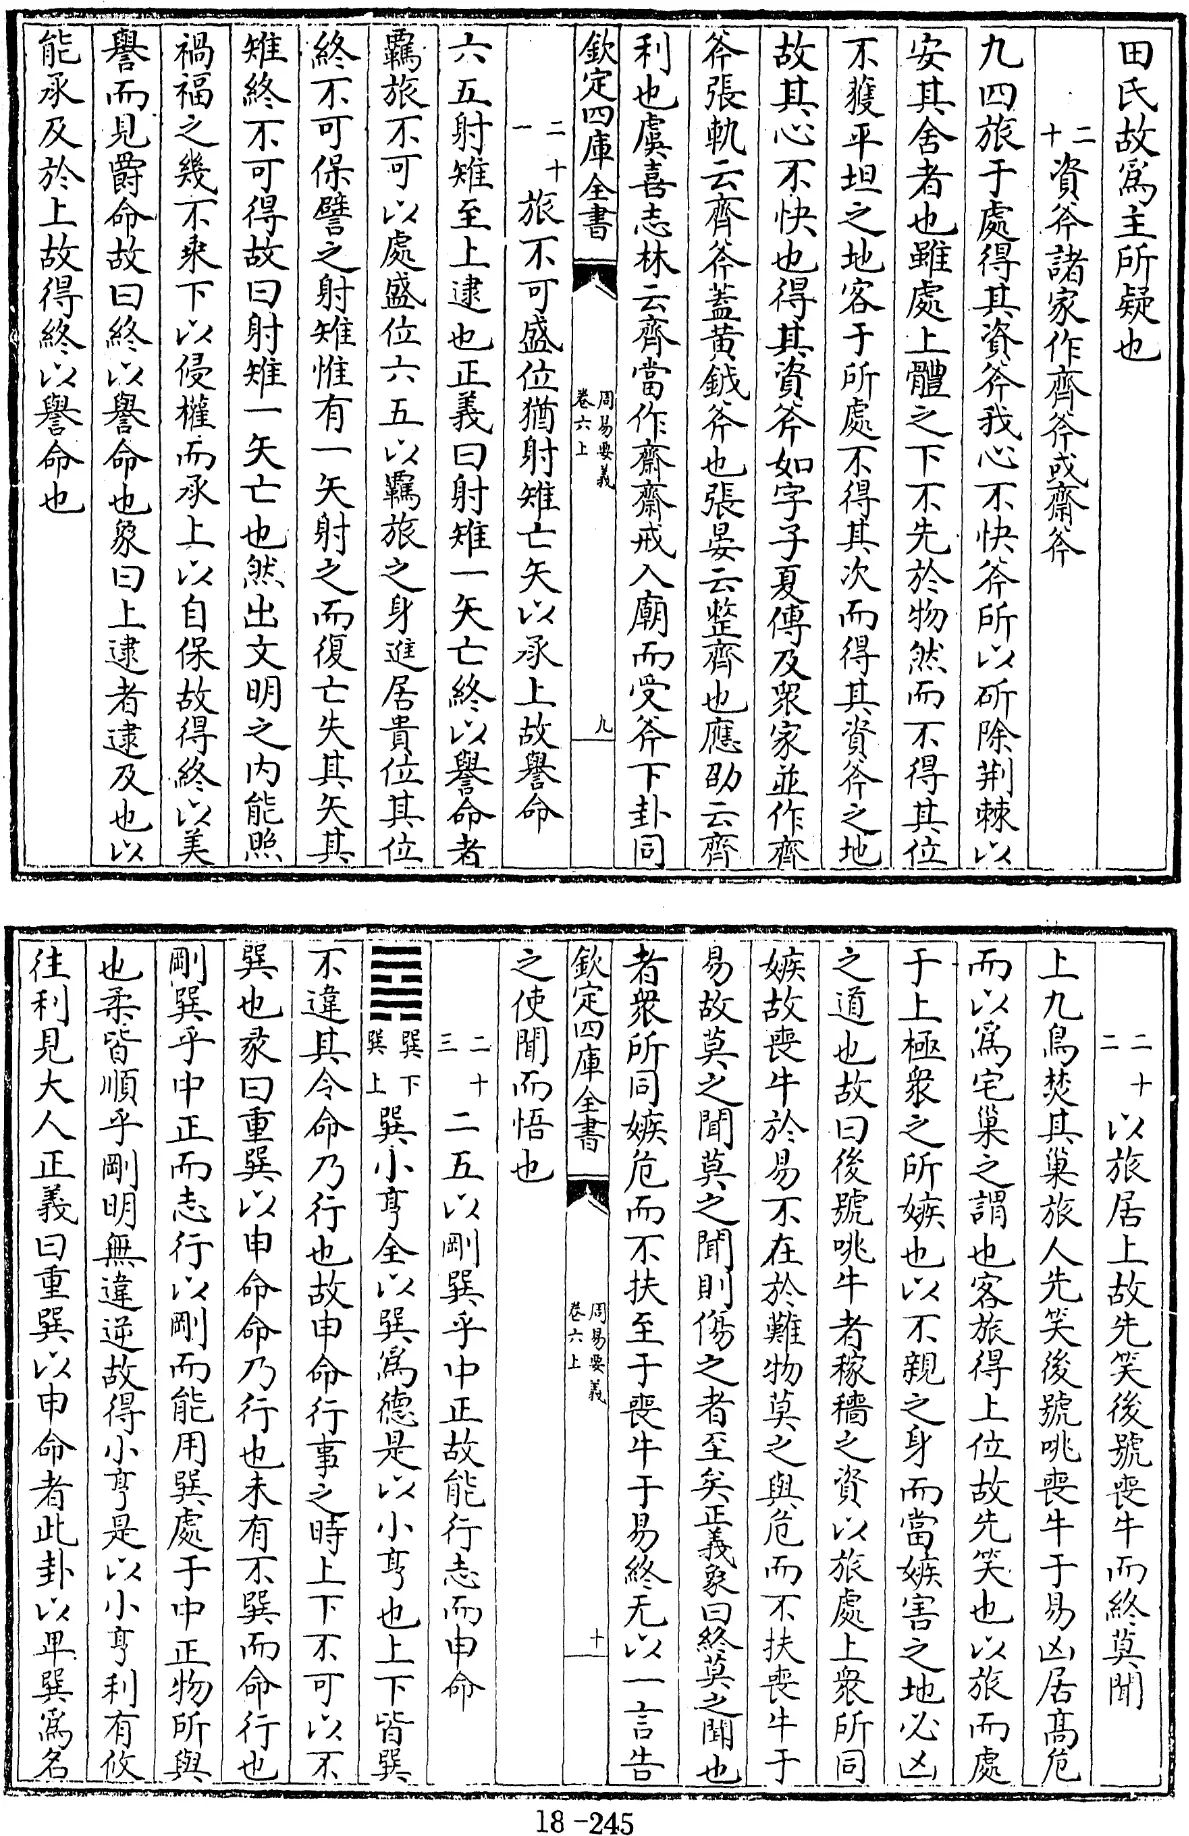 田氏故爲主所疑也
二十 資斧諸家作齊斧或齋斧
九四旅于處得其資斧我心不快斧所以斫除荆棘以
安其舍者也雖處上體之下不先於物然而不得其位
不獲平坦之地客于所處不得其次而得其資斧之地
故其心不快也得其資斧如字子夏傳及衆家並作齊
斧張軌云齊斧蓋黄鉞斧也張晏云整齊也應劭云齊
利也虞喜志林云齊當作齋齋戒入廟而受斧下卦同
欽定四庫全書
周易要義
卷六上
九
二十一 旅不可盛位猶射雉亡矢以承上故譽命
六五射雉至上逮也正義曰射雉一矢亡終以譽命者
羈旅不可以處盛位六五以羈旅之身進居貴位其位
終不可保譬之射雉惟有一矢射之而復亡失其矢其
雉終不可得故曰射雉一矢亡也然出文明之内能照
禍福之幾不乘下以侵權而承上以自保故得終以美
譽而見爵命故曰終以譽命也象曰上逮者逮及也以
能承及於上故得終以譽命也
二十二 以旅居上故先笑後號喪牛而終莫聞
上九鳥焚其巢旅人先笑後號咷喪牛于易凶居髙危
而以爲宅巢之謂也客旅得上位故先笑也以旅而處
于上極衆之所嫉也以不親之身而當嫉害之地必凶
之道也故曰後號咷牛者稼穡之資以旅處上衆所同
嫉故喪牛於易不在於難物莫之與危而不扶喪牛于
易故莫之聞莫之聞則傷之者至矣正義象曰終莫之聞也
者衆所同嫉危而不扶至于喪牛于易終无以一言告
欽定四庫全書
周易要義
卷六上
十
之使聞而悟也
二十三 二五以剛巽乎中正故能行志而申命
巽下巽上 巽小亨全以巽爲德是以小亨也上下皆巽
不違其令命乃行也故申命行事之時上下不可以不
巽也彖曰重巽以申命命乃行也未有不巽而命行也
剛巽乎中正而志行以剛而能用巽處于中正物所與
也柔皆順乎剛明無違逆故得小亨是以小亨利有攸
往利見大人正義曰重巽以申命者此卦以卑巽爲名
18-245